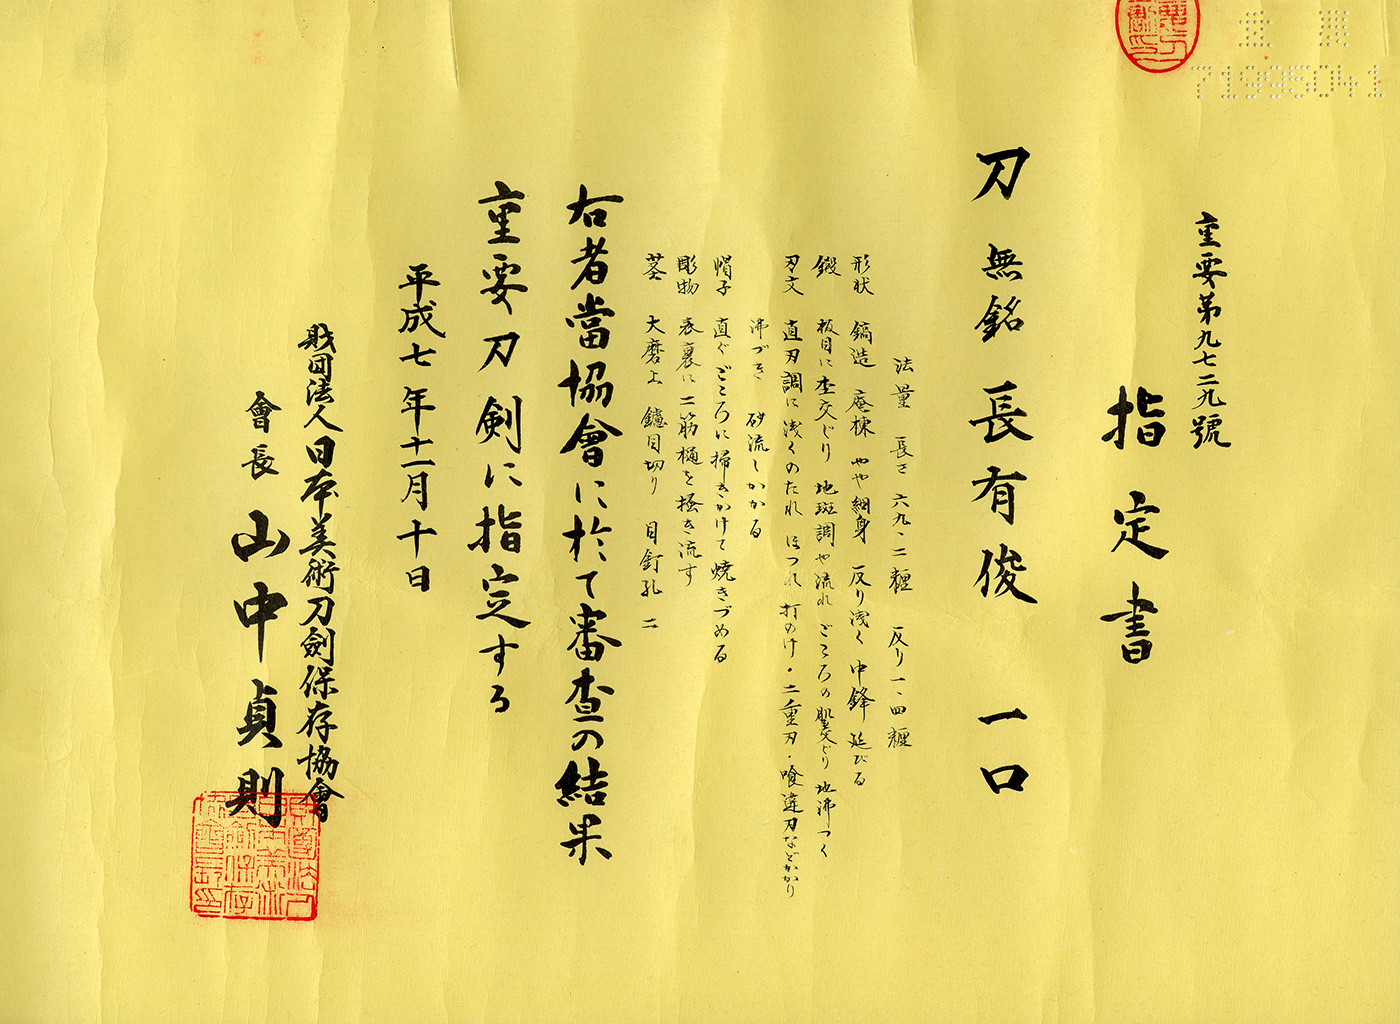 重要
7199S041
重要第九七二九號
指定書
刀 無銘 長有俊 一口
法量 長さ 六九・二糎 反り 一・四糎
形状 鎬造 庵棟 やや細身 反り浅く 中鋒延びる
鍛 板目に杢交じり 地斑調や流れごころの肌交じり 地沸つく
刃文 直刃調に浅くのたれ ほつれ 打のけ・二重刃・喰違刃などかかり
沸づき 砂流しかかる
帽子 直ぐごころに掃きかけて焼きづめる
彫物 表裏に二筋樋を掻き流す
茎 大磨上 鑢目切り 目釘孔 二
右者當協會に於て審査の結果
重要刀剣に指定する
平成七年十一月十日
財団法人日本美術刀劍保存協會
會長 山中貞則